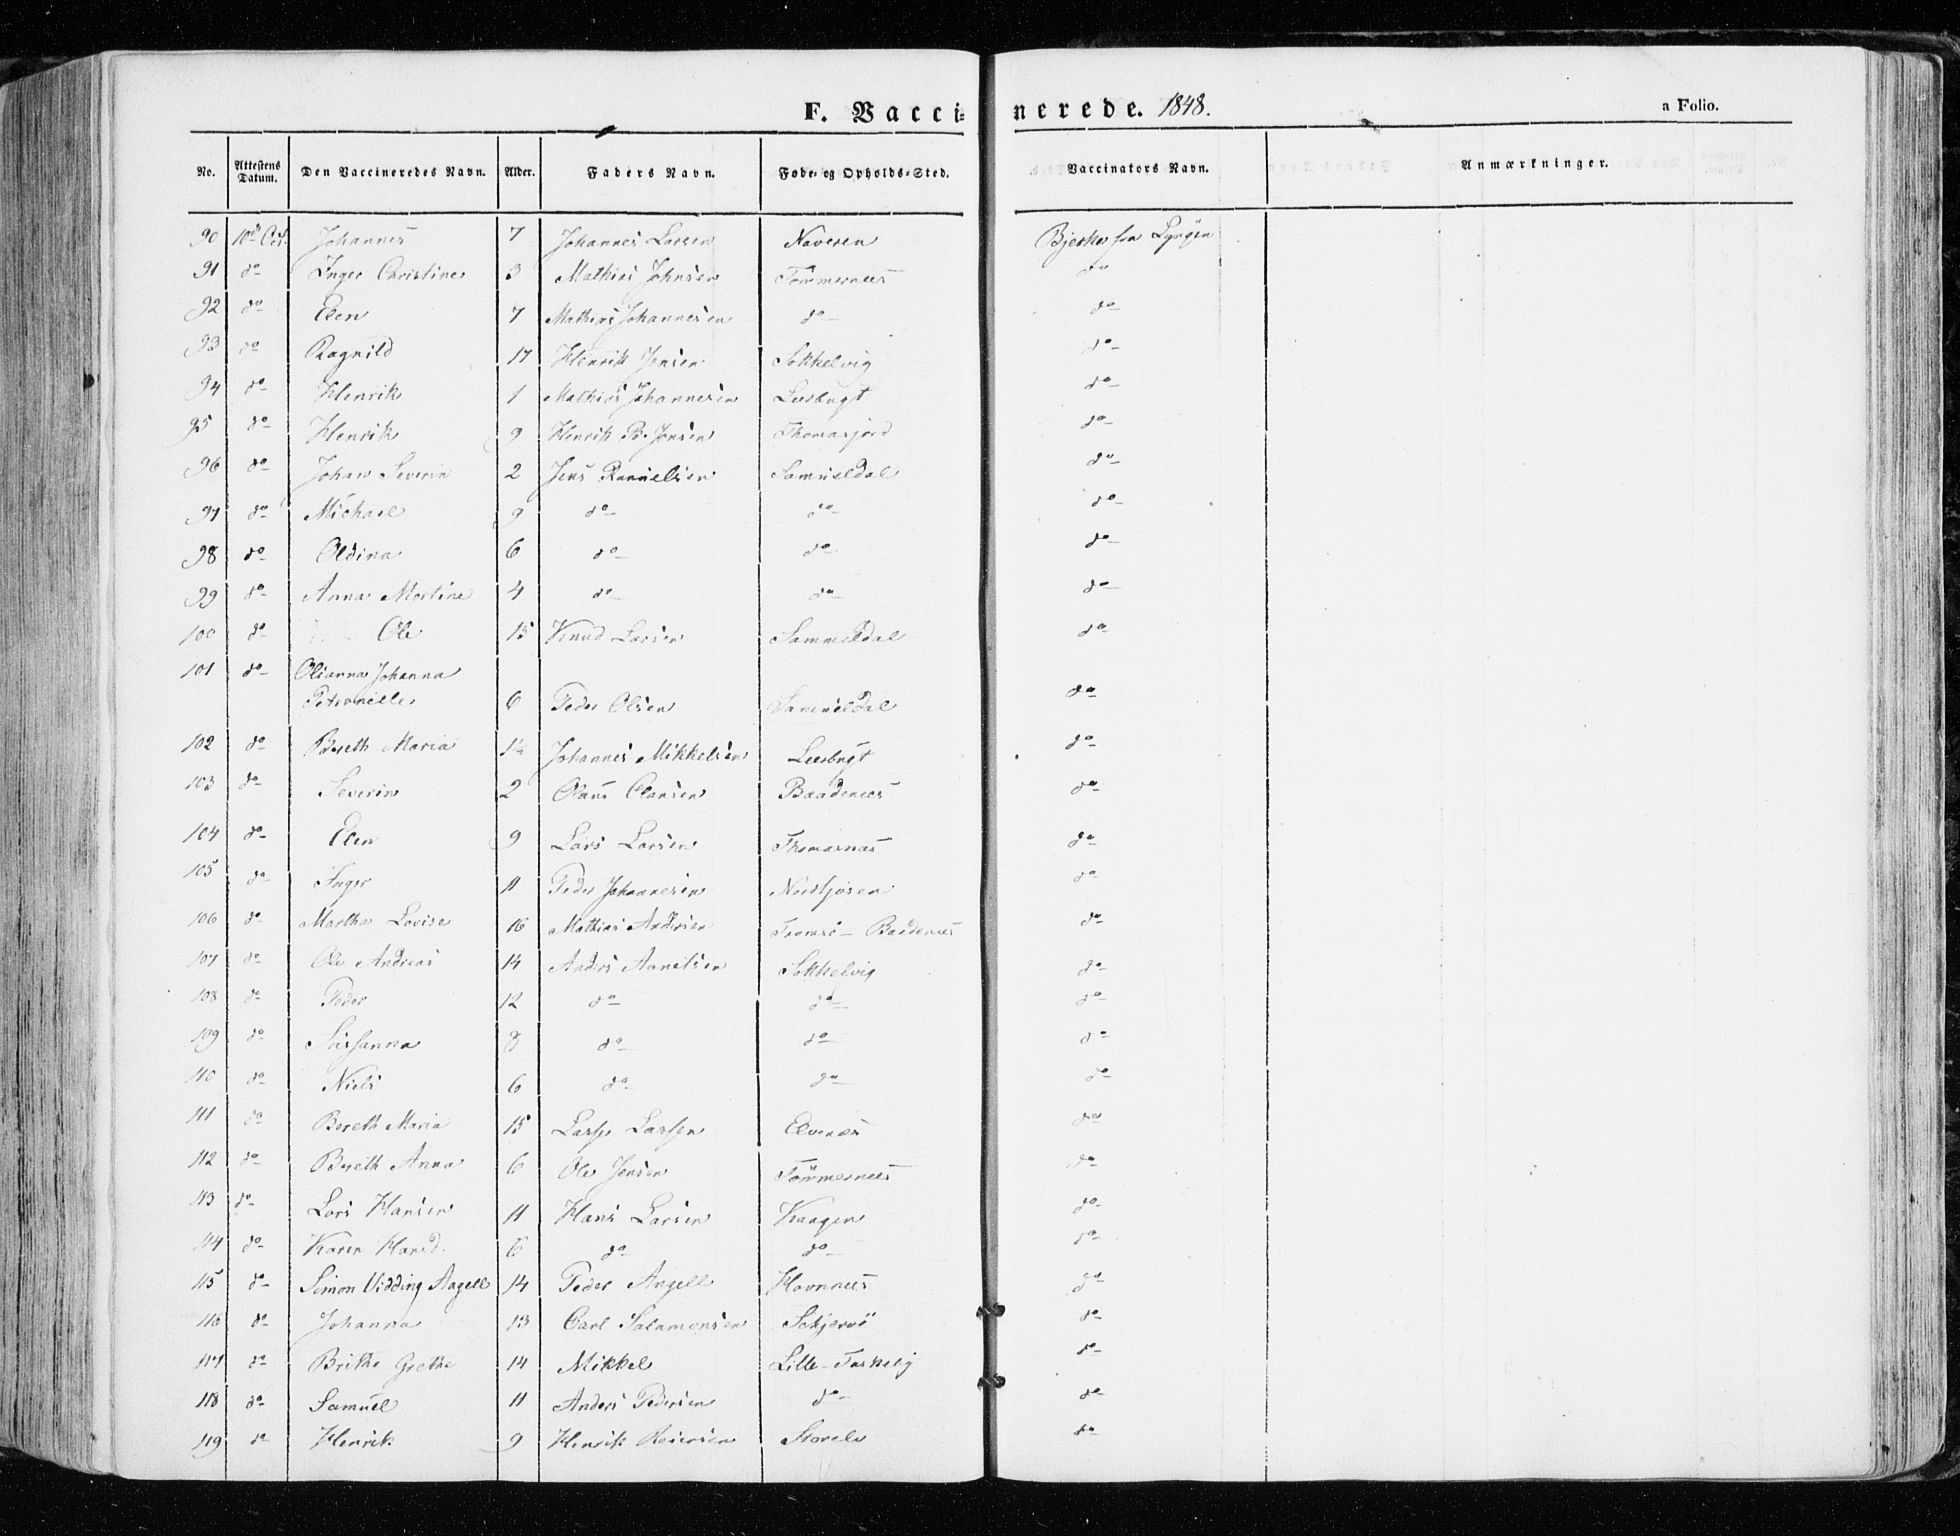 F. Vaccinerede. 1848.
a Folio.
No. Attestens Datum. Den Vaccineredes Navn. Alder. Faders Navn. Føde- og Opholds-Sted. Vaccinators Navn. Anmærkninger.
90 10de Oct. Johannes 7 Johannes Larsen Naveren Bjerke fra Lyngen
91 do Inger Christine 3 Mathias Johnsen Tømmernees do
92 do Elen 7 Mathias Johannesen do do
93 do Ragnild 17 Henrik Jensen Sokkelvig do
94 do Henrik 1 Mathias Johannesen Leerbugt do
95 do Henrik 9 Henrik B. Jensen Thomasjord do
96 do Johan Severin 2 Jens Samueldal do
97 do Michael 9 do do do
98 do Oldina 6 do do do
99 do Anna Martine 4 do do do
100 do Ole 15 Knud Larsen Sammeldal do
101 do Olianna Johanna
Petronelle 6 Peder Olsen Samueldal do
102 do Bereth Maria Johannes Mikkelsen Leerbugt do
103 do Severin 2 Olaus Clausen Baadenees do
104 do Elen 9 Lars Larsen Thomasnæs do
105 do Inger 11 Peder Johannesen do
106 do Martha Lovise 16 Mathias Andersen Tromsø - Baadenees do
107 do Ole Andreas 14 Anders Sokkelvig do
108 do Peder 12 do do do
109 do Susanna 8 do do do
110 do Niels 6 do do do
111 do Bereth Maria 15 Lars Larsen Elvenæs do
112 do Bereth Anna 6 Ole Jensen Tømmernees do
113 do Lars Hansen 11 Hans Larsen Kaagen do
114 do Karen Hansd. 6 do do do
115 do Simon Vidding Angell 14 Peder Angell Havnnees do
116 do Johanna 13 Carl Salamonsen Schjervö do
117 do Brithe Grethe 14 Mikkel Lille-Taskelvig do
118 do Samuel 11 Anders Pedersen do do
119 do Henrik 9 Henrik Reiersen Storelv do